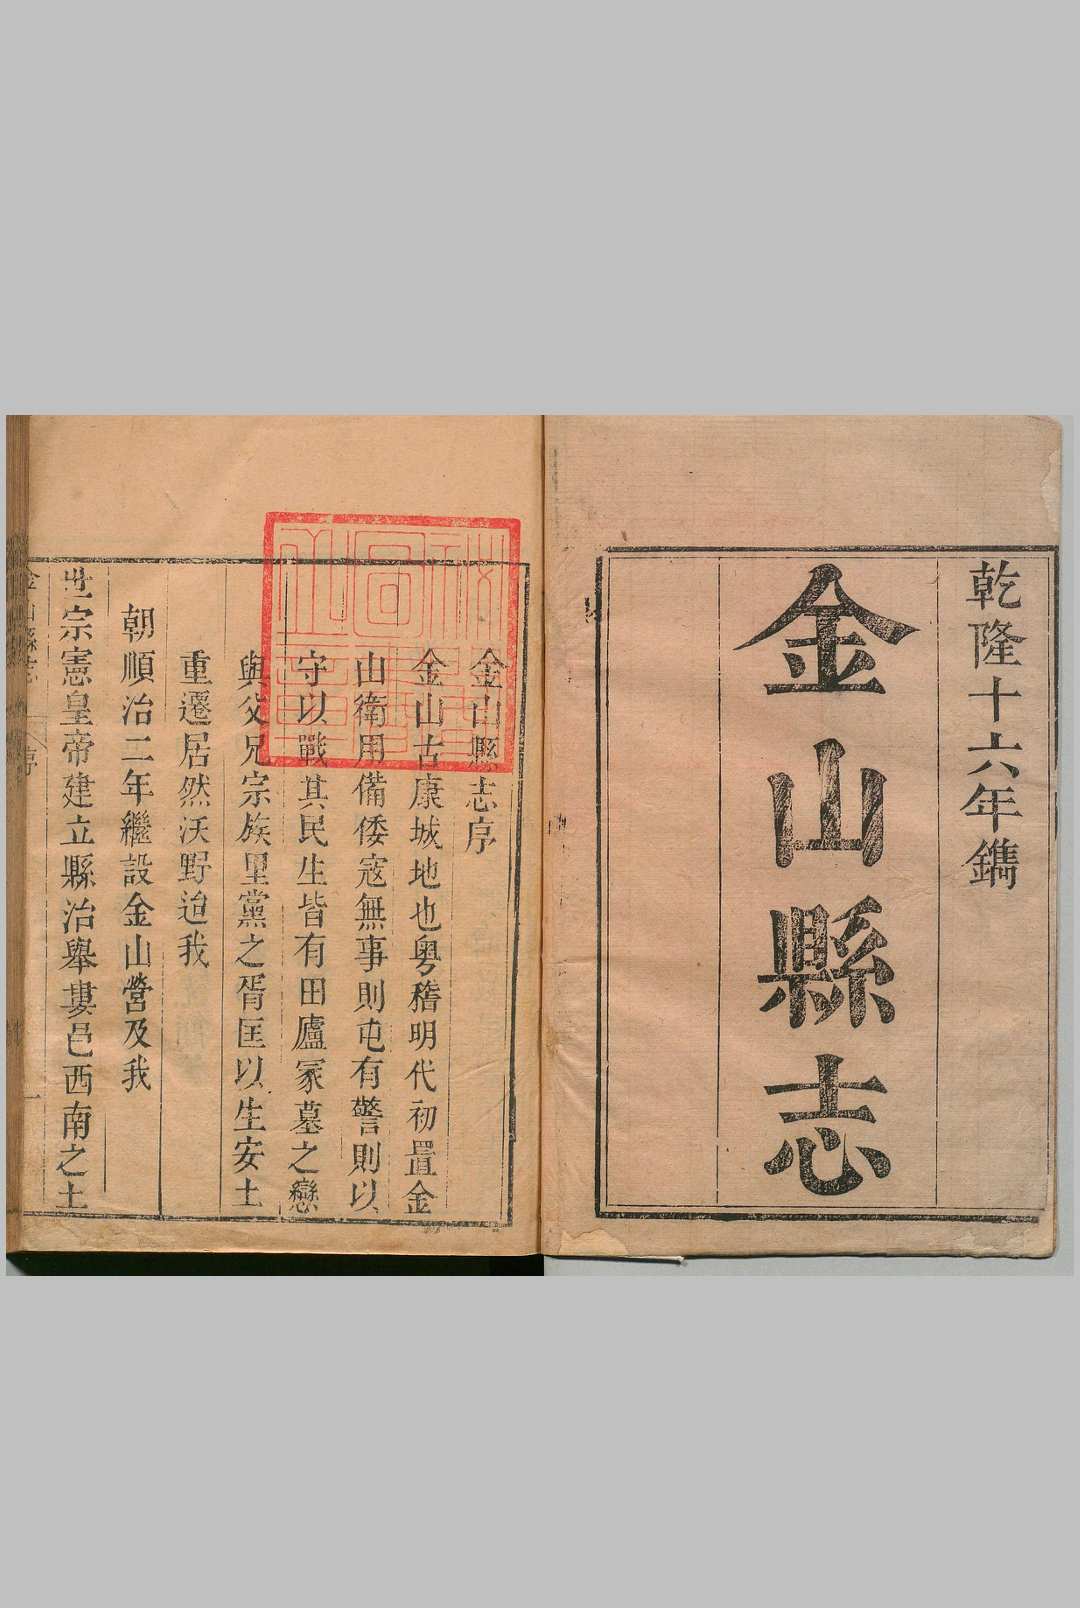 乾隆十六年鐫
金山縣志
金山縣志序
金山古康城地也粵稽明代初置金
山衛用備倭寇無事則屯有警則以
守以戰其民生皆有田廬冢墓之戀
與父兄宗族里黨之胥匡以生安土
重遷居然沃野迨我
朝順治二年繼設金山營及我
世宗憲皇帝建立縣治舉婁邑西南之土
金山縣志
序
一